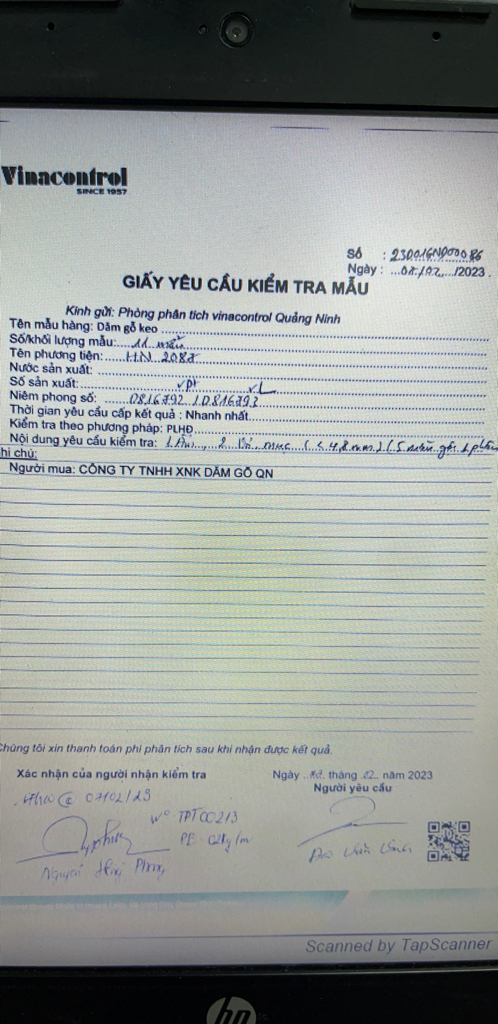 Vinacontrol
SINCE 1957
Số : 230216NP00086
Ngày : .../02.../2023.
GIẤY YÊU CẦU KIỂM TRA MẪU
Kính gửi: Phòng phân tích vinacontrol Quảng Ninh
Tên mẫu hàng: Dăm gỗ keo
Số/khối lượng mẫu: 11 mẫu
Tên phương tiện: HN 2087
Nước sản xuất:
Số sản xuất: VPT VL
Niêm phong số: 0816792 / 0816793
Thời gian yêu cầu cấp kết quả : Nhanh nhất
Kiểm tra theo phương pháp: PLHĐ
Nội dung yêu cầu kiểm tra: 1. Ẩm, 2. mục (< 4,8 mm) (5 mẫu
hi chú:
Người mua: CÔNG TY TNHH XNK DĂM GỖ QN
Chúng tôi xin thanh toán phí phân tích sau khi nhận được kết quả.
Xác nhận của người nhận kiểm tra
Ngày .. tháng .02. năm 2023
Người yêu cầu
07/02/23
Nº TPT00213
PE
Nguyễn Hồng Phong
Scanned by TapScanner
hp